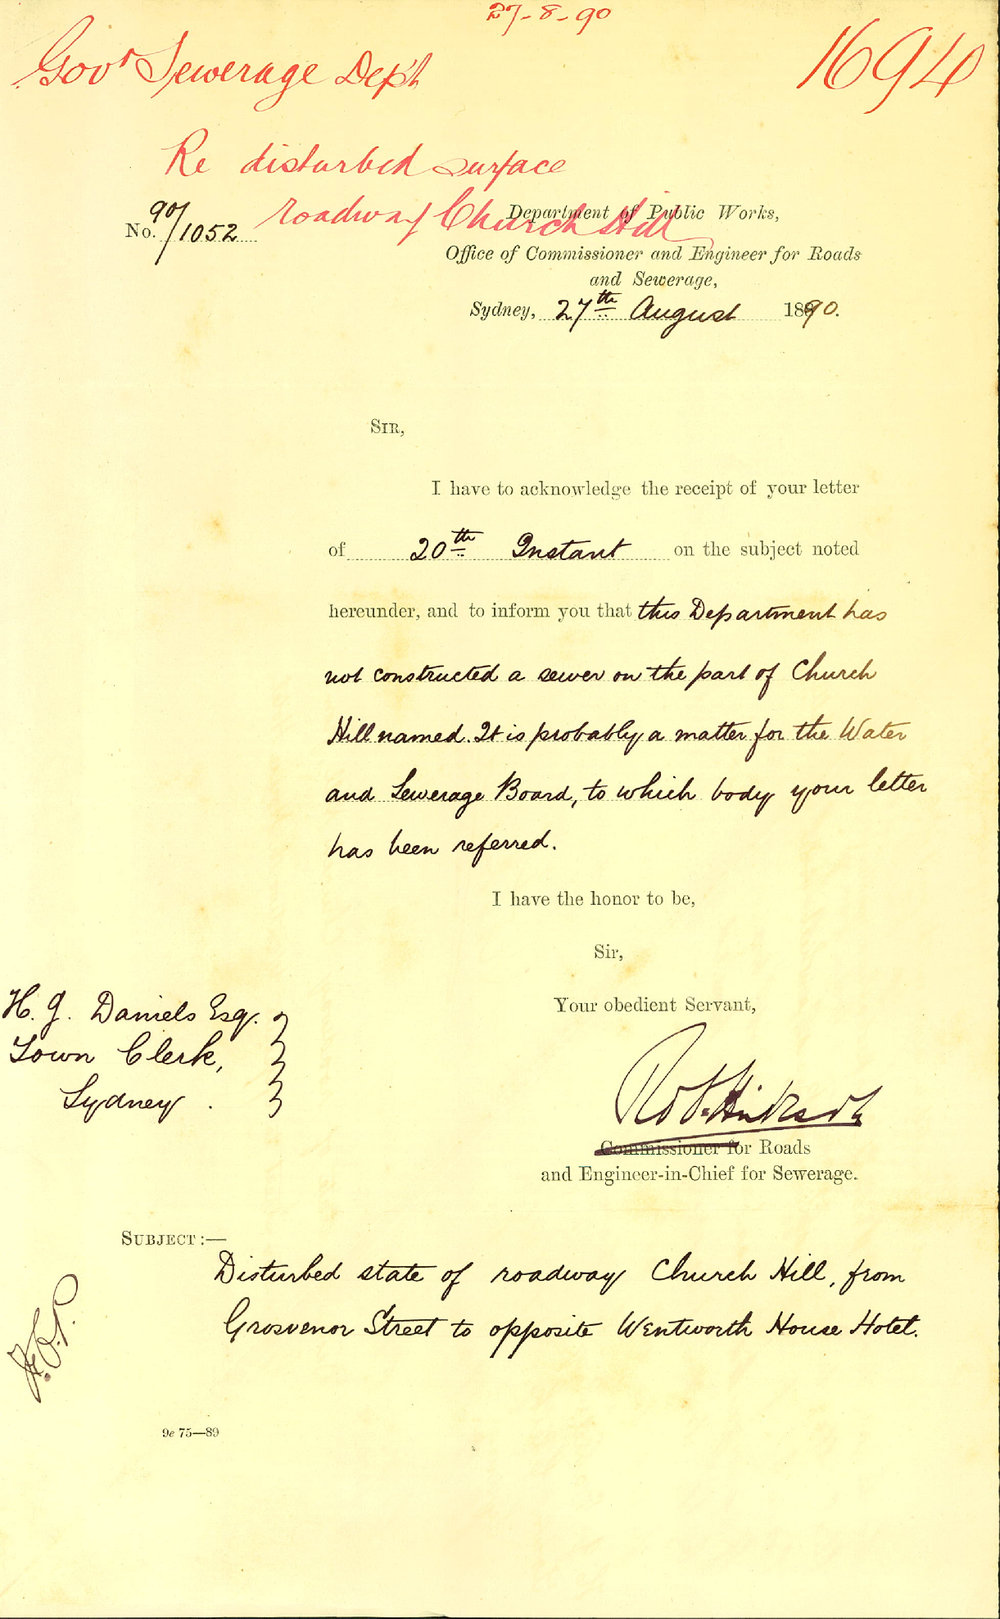 27-8-90
Govt Sewerage Dept
1694
Re disturbed surface
roadway Church Hill
No. 90/1052
Department of Public Works,
Office of Commissioner and Engineer for Roads
and Sewerage,
Sydney, 27th August 1890.
SIR,
I have to acknowledge the receipt of your letter
of 20th Instant on the subject noted
hereunder, and to inform you that this Department has
not constructed a sewer on the part of Church
Hill named. It is probably a matter for the Water
and Sewerage Board, to which body your letter
has been referred.
I have the honor to be,
Sir,
Your obedient Servant,
H. J. Daniels Esq.
Town Clerk,
Sydney.
Robt. Hickson
Commissioner for Roads
and Engineer-in-Chief for Sewerage.
SUBJECT:—
Disturbed state of roadway Church Hill, from
Grosvenor Street to opposite Wentworth House Hotel.
9e 75—89